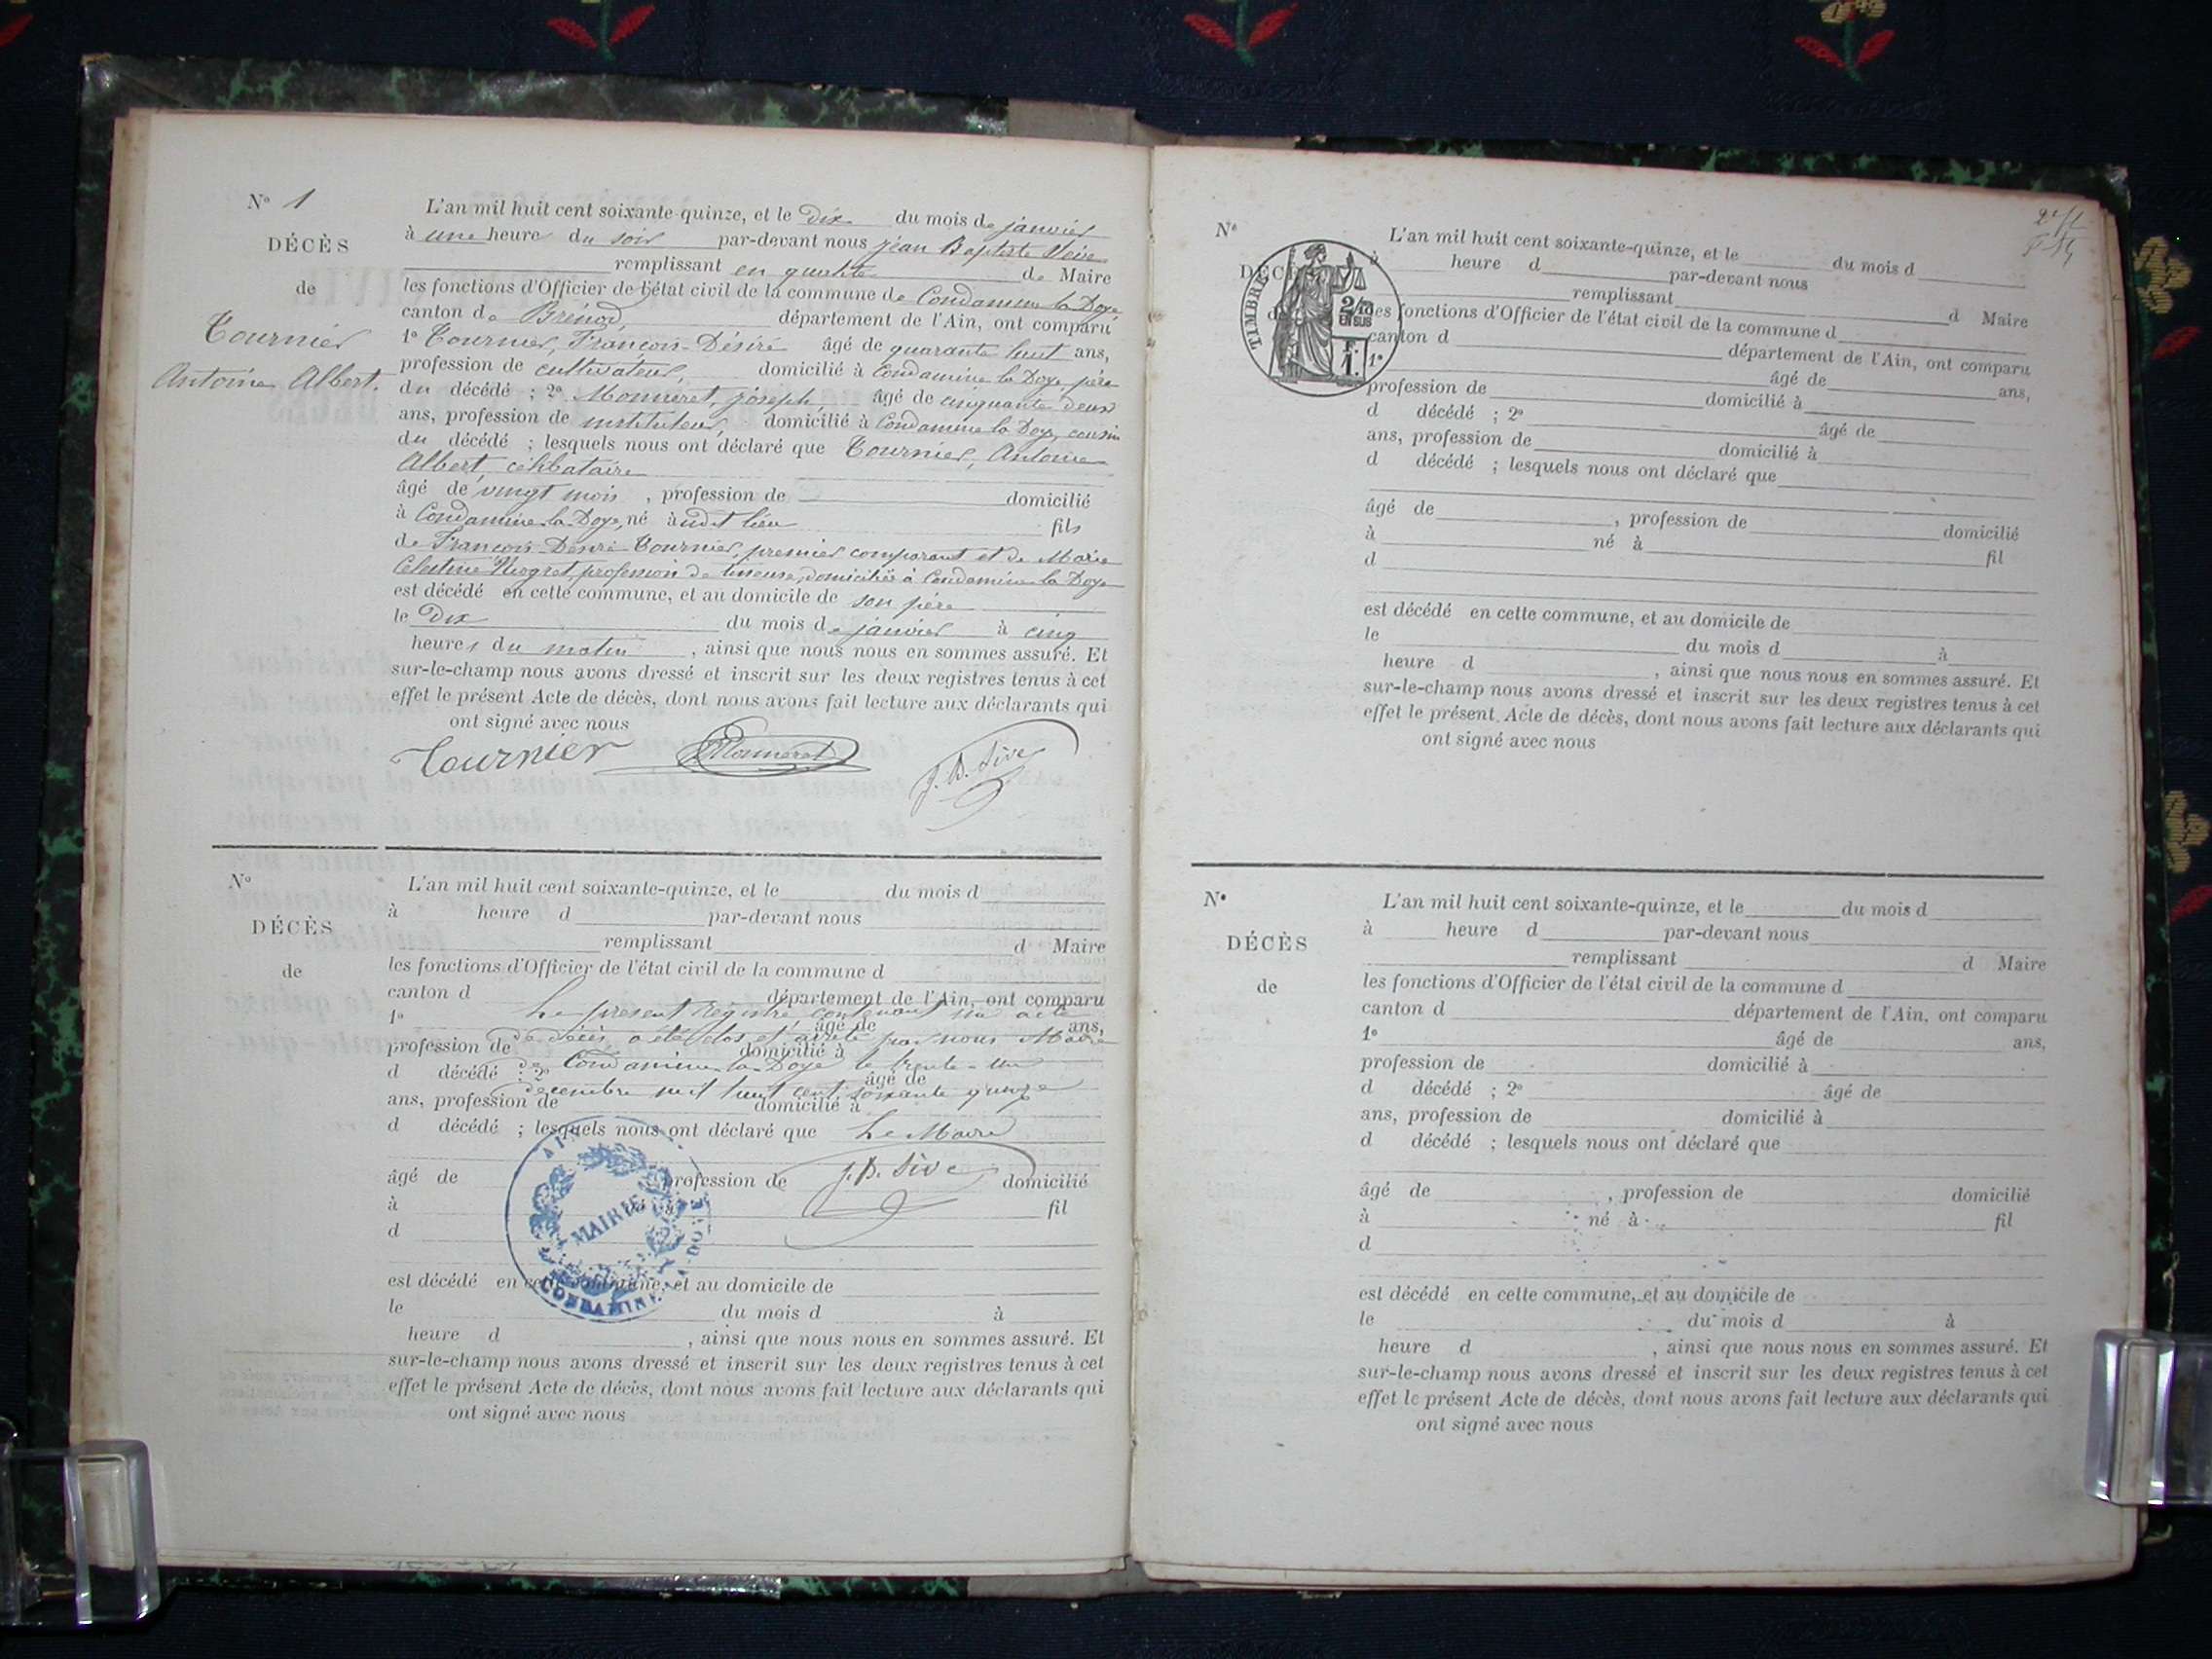 N° 1
DÉCÈS
de
Tournier
Antoine Albert.
L'an mil huit cent soixante-quinze, et le Dix du mois de janvier
à une heure du soir par-devant nous jean Baptiste Sève
remplissant en qualité de Maire
les fonctions d'Officier de l'état civil de la commune de Condamine la Doye
canton de Brénod, département de l'Ain, ont comparu
1° Tournier, François-Désiré âgé de quarante huit ans,
profession de cultivateur, domicilié à Condamine la Doye père
du décédé ; 2° Monneret, joseph, âgé de cinquante deux
ans, profession de instituteur, domicilié à Condamine la Doye, cousin
du décédé ; lesquels nous ont déclaré que Tournier, Antoine
Albert, célibataire
âgé de vingt mois , profession de domicilié
à Condamine la Doye, né à udit lieu fils
de François Désiré Tournier, premier comparant et de Marie
Célestine profession de domiciliée à Condamine la Doye
est décédé en cette commune, et au domicile de son père
le Dix du mois de janvier à cinq
heures du matin , ainsi que nous nous en sommes assuré. Et
sur-le-champ nous avons dressé et inscrit sur les deux registres tenus à cet
effet le présent Acte de décès, dont nous avons fait lecture aux déclarants qui
ont signé avec nous
Tournier Monneret J. B. Sève
N°
DÉCÈS
de
L'an mil huit cent soixante-quinze, et le du mois d
à heure d par-devant nous
remplissant d Maire
les fonctions d'Officier de l'état civil de la commune d
canton d département de l'Ain, ont comparu
Le présent registre contenant un acte
1° âgé de ans,
de décès, a été clos et arrêté par nous Maire
profession de domicilié à
de Condamine la Doye le trente-un
d décédé ; 2° âgé de
décembre mil huit cent soixante quinze
ans, profession de domicilié à
d décédé ; lesquels nous ont déclaré que
Le Maire
âgé de profession de domicilié
J. B. Sève
à fil
d
MAIRIE
CONDAMINE
est décédé en cette commune, et au domicile de
le du mois d à
heure d , ainsi que nous nous en sommes assuré. Et
sur-le-champ nous avons dressé et inscrit sur les deux registres tenus à cet
effet le présent Acte de décès, dont nous avons fait lecture aux déclarants qui
ont signé avec nous
N°
DÉC
de
TIMBRE
2/10
EN SUS
F.
1.
L'an mil huit cent soixante-quinze, et le du mois d
à heure d par-devant nous
remplissant d Maire
les fonctions d'Officier de l'état civil de la commune d
canton d département de l'Ain, ont comparu
1° âgé de ans,
profession de domicilié à
d décédé ; 2° âgé de
ans, profession de domicilié à
d décédé ; lesquels nous ont déclaré que
âgé de , profession de domicilié
à né à fil
d
est décédé en cette commune, et au domicile de
le du mois d à
heure d , ainsi que nous nous en sommes assuré. Et
sur-le-champ nous avons dressé et inscrit sur les deux registres tenus à cet
effet le présent Acte de décès, dont nous avons fait lecture aux déclarants qui
ont signé avec nous
N°
DÉCÈS
de
L'an mil huit cent soixante-quinze, et le du mois d
à heure d par-devant nous
remplissant d Maire
les fonctions d'Officier de l'état civil de la commune d
canton d département de l'Ain, ont comparu
1° âgé de ans,
profession de domicilié à
d décédé ; 2° âgé de
ans, profession de domicilié à
d décédé ; lesquels nous ont déclaré que
âgé de , profession de domicilié
à né à fil
d
est décédé en cette commune, et au domicile de
le du mois d à
heure d , ainsi que nous nous en sommes assuré. Et
sur-le-champ nous avons dressé et inscrit sur les deux registres tenus à cet
effet le présent Acte de décès, dont nous avons fait lecture aux déclarants qui
ont signé avec nous